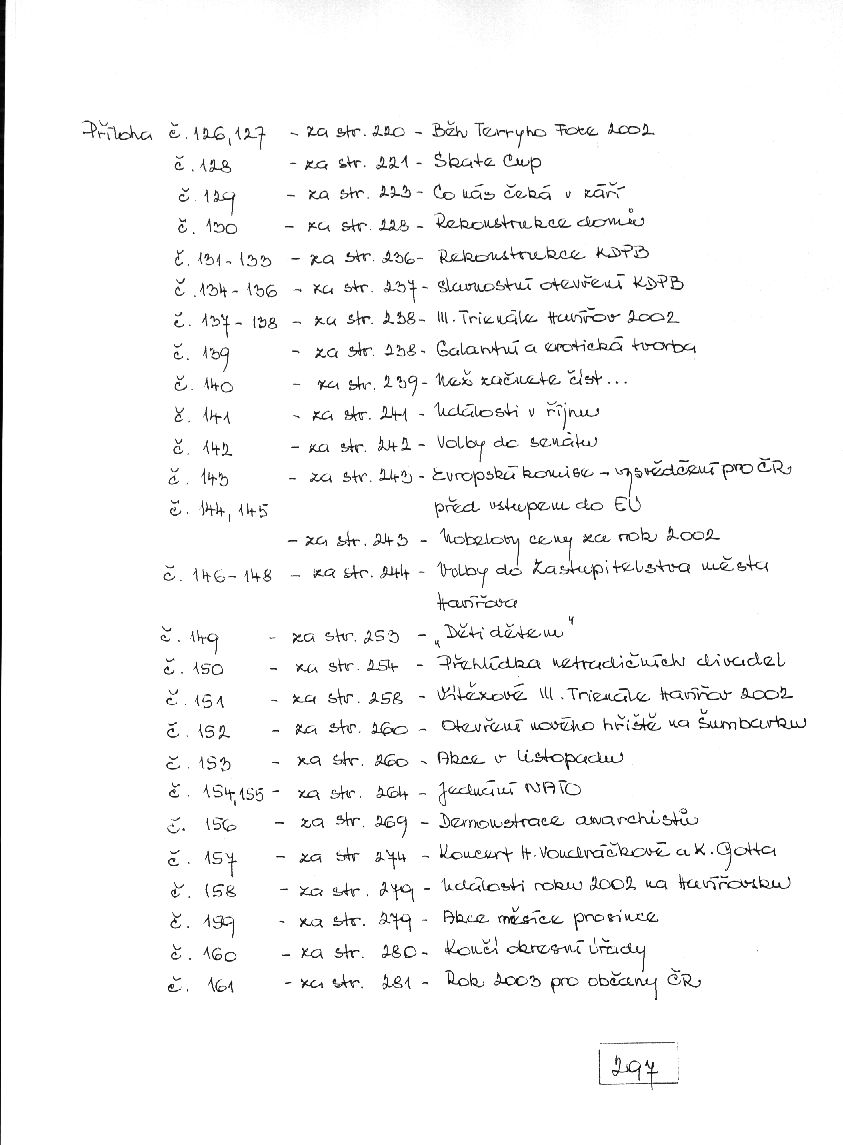 Příloha č. 126, 127 - za str. 220 - Běh Terryho Foxe 2002
č. 128 - za str. 221 - Skate Cup
č. 129 - za str. 223 - Co nás čeká v září
č. 130 - za str. 228 - Rekonstrukce domů
č. 131 - 133 - za str. 236 - Rekonstrukce KDPB
č. 134 - 136 - za str. 237 - Slavnostní otevření KDPB
č. 137 - 138 - za str. 238 - III. Trienále Havířov 2002
č. 139 - za str. 238 - Galantní a erotická tvorba
č. 140 - za str. 239 - Než začnete číst...
č. 141 - za str. 241 - Události v říjnu
č. 142 - za str. 242 - Volby do senátu
č. 143 - za str. 243 - Evropská komise - vysvědčení pro ČR
č. 144, 145 před vstupem do EU
- za str. 243 - Nobelovy ceny za rok 2002
č. 146 - 148 - za str. 244 - Volby do Zastupitelstva města
Havířova
č. 149 - za str. 253 - „Děti dětem"
č. 150 - za str. 254 - Přehlídka netradičních divadel
č. 151 - za str. 258 - Vítězové III. Trienále Havířov 2002
č. 152 - za str. 260 - Otevření nového hřiště na Šumbarku
č. 153 - za str. 260 - Akce v listopadu
č. 154, 155 - za str. 264 - Jednání NATO
č. 156 - za str. 269 - Demonstrace anarchistů
č. 157 - za str 274 - Koncert H. Vondráčkové a K. Gotta
č. 158 - za str. 279 - Události roku 2002 na Havířovsku
č. 199 - za str. 279 - Akce měsíce prosince
č. 160 - za str. 280 - Končí okresní úřady
č. 161 - za str. 281 - Rok 2003 pro občany ČR
297